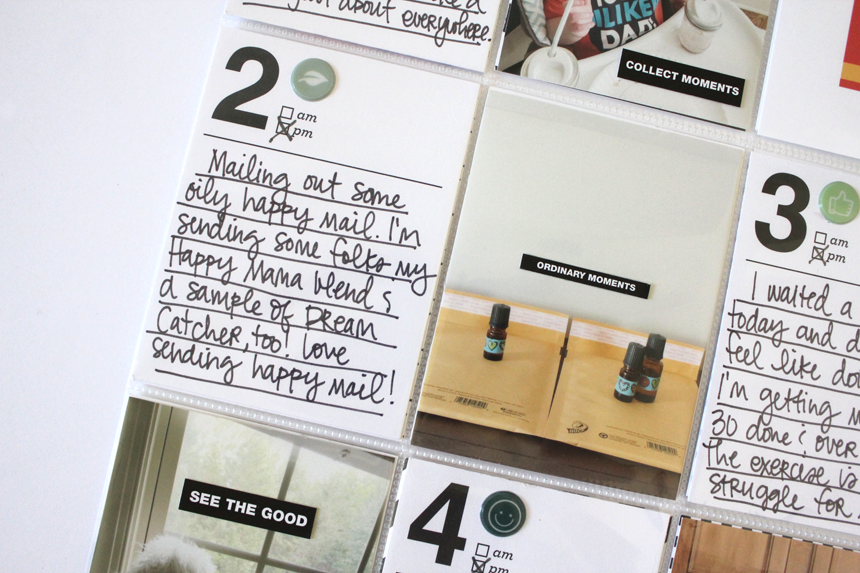 just about everywhere.
COLLECT MOMENTS
2
am
pm
Mailing out some
oily happy mail. I'm
sending some folks my
Happy Mama blend &
a sample of Dream
Catcher, too! Love
sending happy mail!
ORDINARY MOMENTS
3
am
pm
I waited a
today and
feel like
I'm getting
30 done & over
The exercise is
struggle for
SEE THE GOOD
4
am
pm